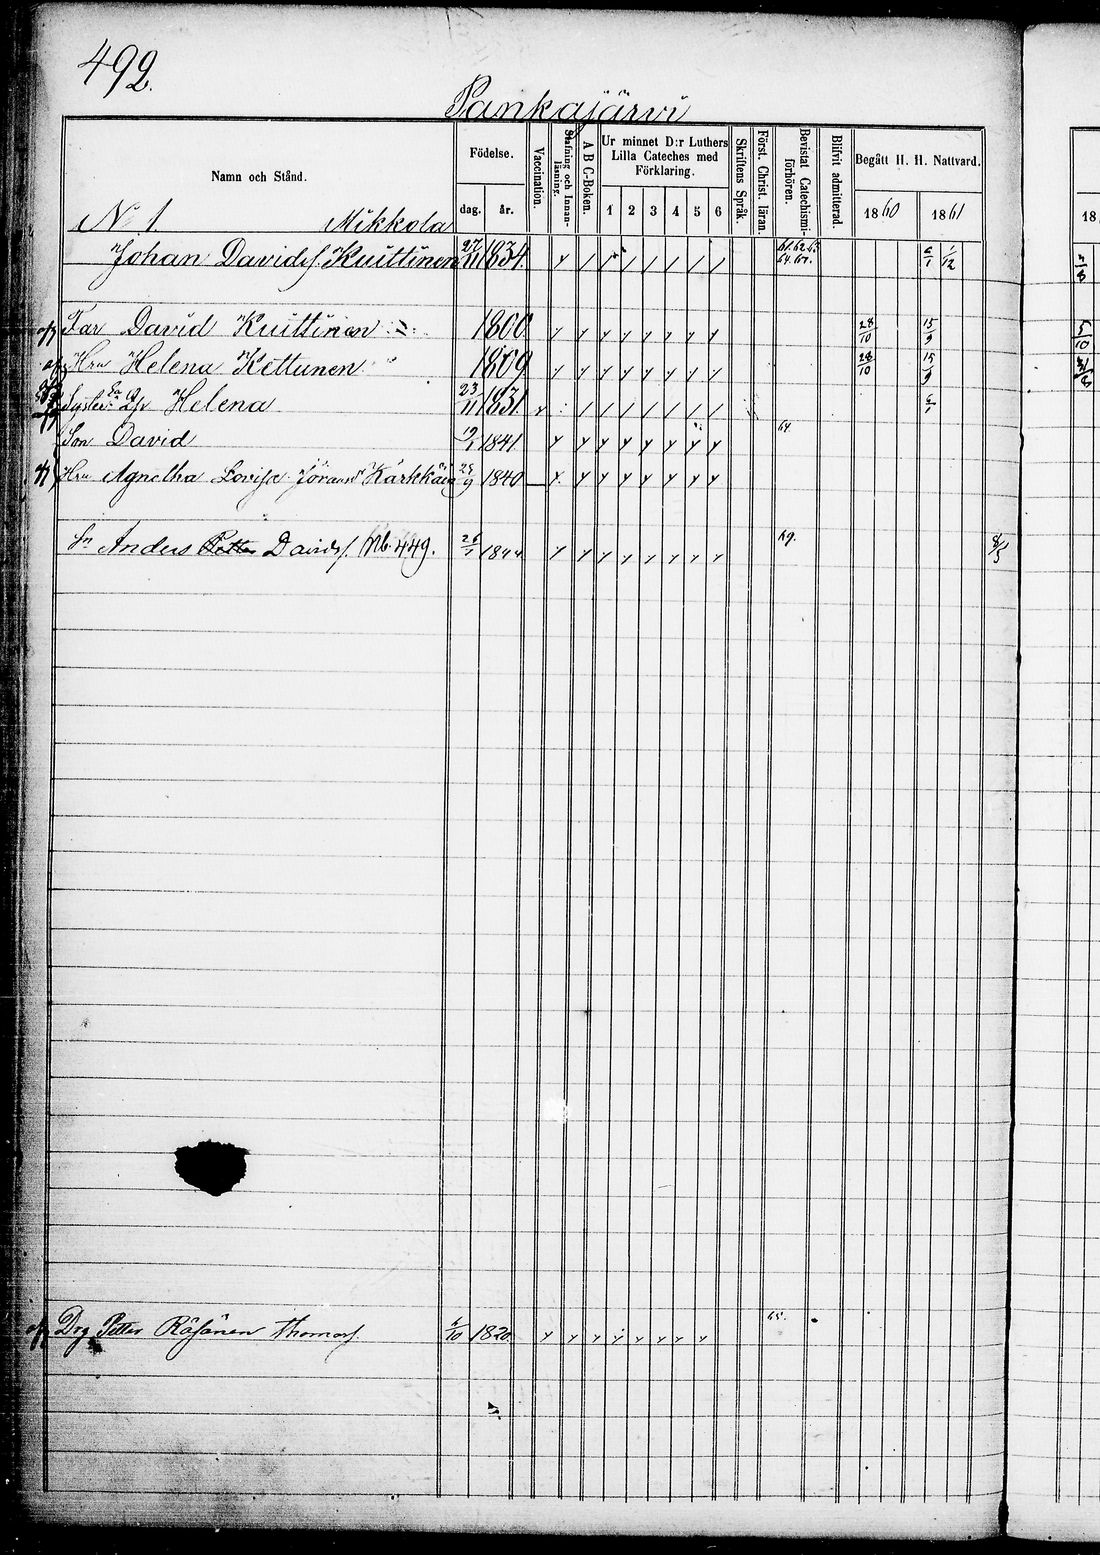 492.
Pankajärvi
Namn och Stånd.
Födelse.
dag.
år.
Vaccination.
Stafning och Innanläsning.
A B C-Boken.
Ur minnet D:r Luthers Lilla Cateches med Förklaring.
1 2 3 4 5 6
Skriftens Språk.
Först. Christ. läran.
Bevistat Catechismiförhören.
Blifvit admitterad.
Begått H. H. Nattvard.
1860 1861
18
N 1. Mikkola
Johan Davidss. Kuittinen 27/11 1834. 61.62.63 64. 6/1 1/12
Far David Kuittinen 1800 28/10 15/9 5/10
Hru Helena Kettunen 1809 28/10 15/9
Syster Helena 23/11 1831 6/1
Son David 19/1 1841 64
Hru Agnetha Lovisa Jöransd Kärkkäin 1840
Sn Anders Petter Davidss. Nb. 449. 26/1 1844 69.
Drg Petter Räsänen Thomass 1820 65.